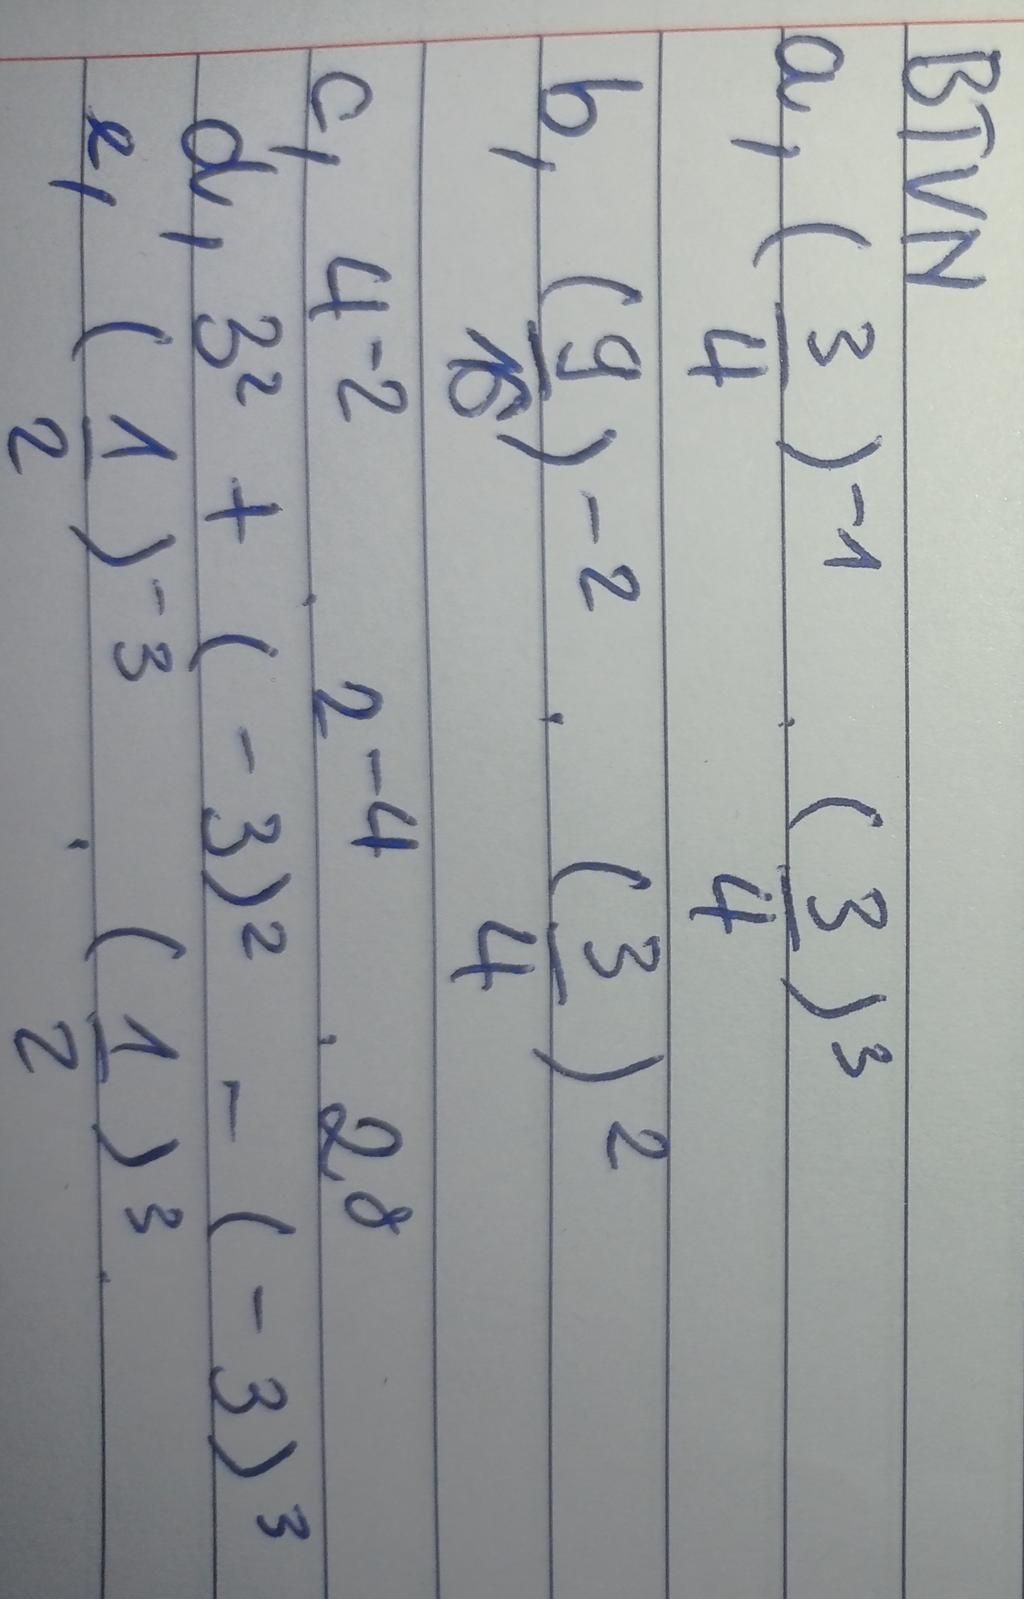 BTVN
a, (3/4)^-1 . (3/4)^3
b, (9/16)^-2 . (3/4)^2
c, 4^-2 . 2^-4 . 2^8
d, 3^2 + (-3)^2 - (-3)^3
e, (1/2)^-3 . (1/2)^3